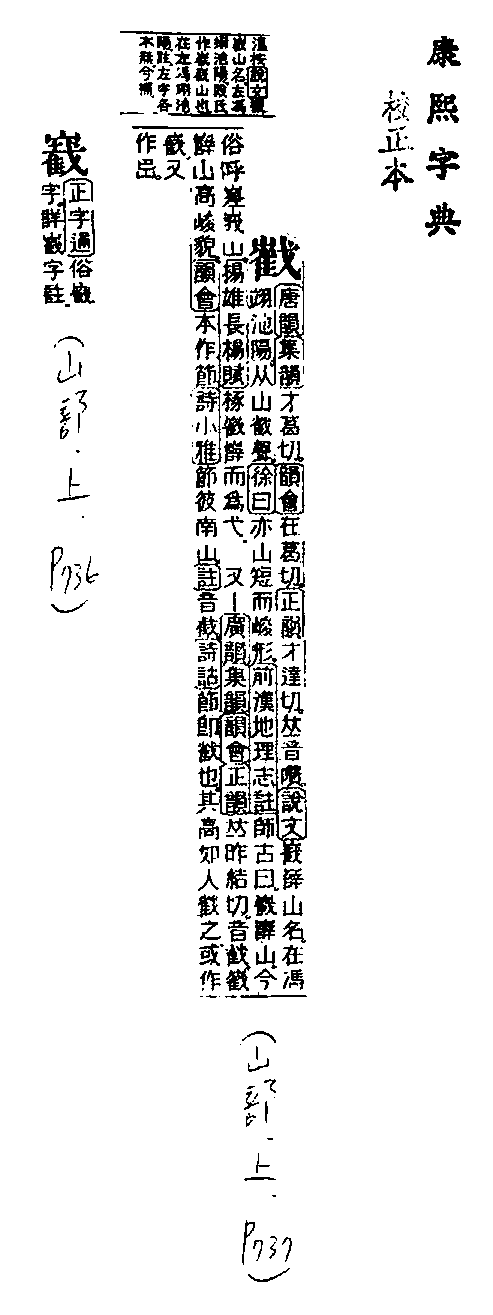 康熙字典
校正本
唐韻集韻才葛切韻會在葛切正韻才達切𠀤音囋說文巀嶭山名在馮
翊池陽从山巀聲徐曰亦山短而峻形前漢地理志註師古曰巀嶭山今
俗呼嵳峩山揚雄長楊賦椓巀嶭而爲弋 又丨廣韻集韻韻會正韻𠀤昨結切音截巀
嶭山高峻貌韻會本作節詩小雅節彼南山註音截詩詁節卽巀也其高如人巀之或作
巀又
作
說文
巀山名在馮
翊池陽段氏
作巀嶭山也
在左馮翊池
陽註左字各
本無今補
正字通俗巀
字詳巀字註
(山部.上.P.736)
(山部.上.P.737)